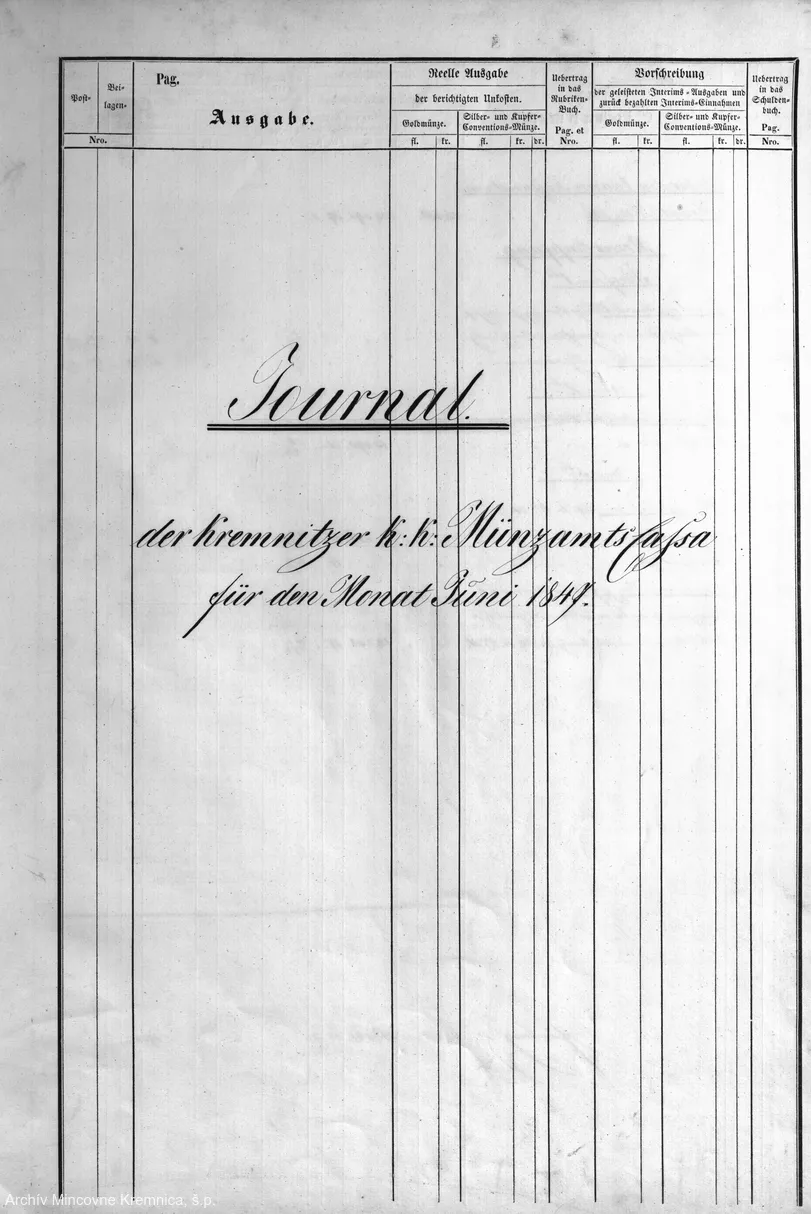 Post-
Bei-
lagen-
Nro.
Pag.
Ausgabe.
Reelle Ausgabe
der berichtigten Unkosten.
Goldmünze.
Silber- und Kupfer-
Conventions-Münze.
fl. kr. fl. kr. dr.
Uebertrag
in das
Rubriken-
Buch.
Pag. et
Nro.
Vorschreibung
der geleisteten Interims-Ausgaben und
zurück bezahlten Interims-Einnahmen
Goldmünze.
Silber- und Kupfer-
Conventions-Münze.
fl. kr. fl. kr. dr.
Uebertrag
in das
Schulden-
buch.
Pag.
Nro.
Journal.
der Kremnitzer k: k: Münzamts Cassa
für den Monat Juni 1847.
Archív Mincovne Kremnica, š.p.